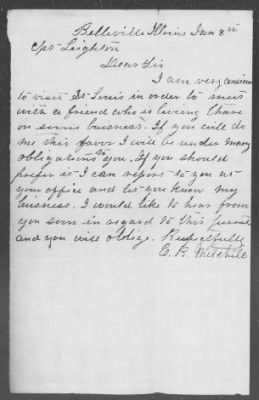 Belleville Illinois Jan 8th
Cpt Leighton
Dear Sir
I am very anxious
to visit St Louis in order to meet
with a friend who is living there
on some buisness. If you will do
me this favor I will be under many
obligations to you. If you should
prefer it I can report to you at
your office and let you know my
buisness. I would like to hear from
you soon in regard to this
and you will oblige. Respectfully
C. B. Mitchell